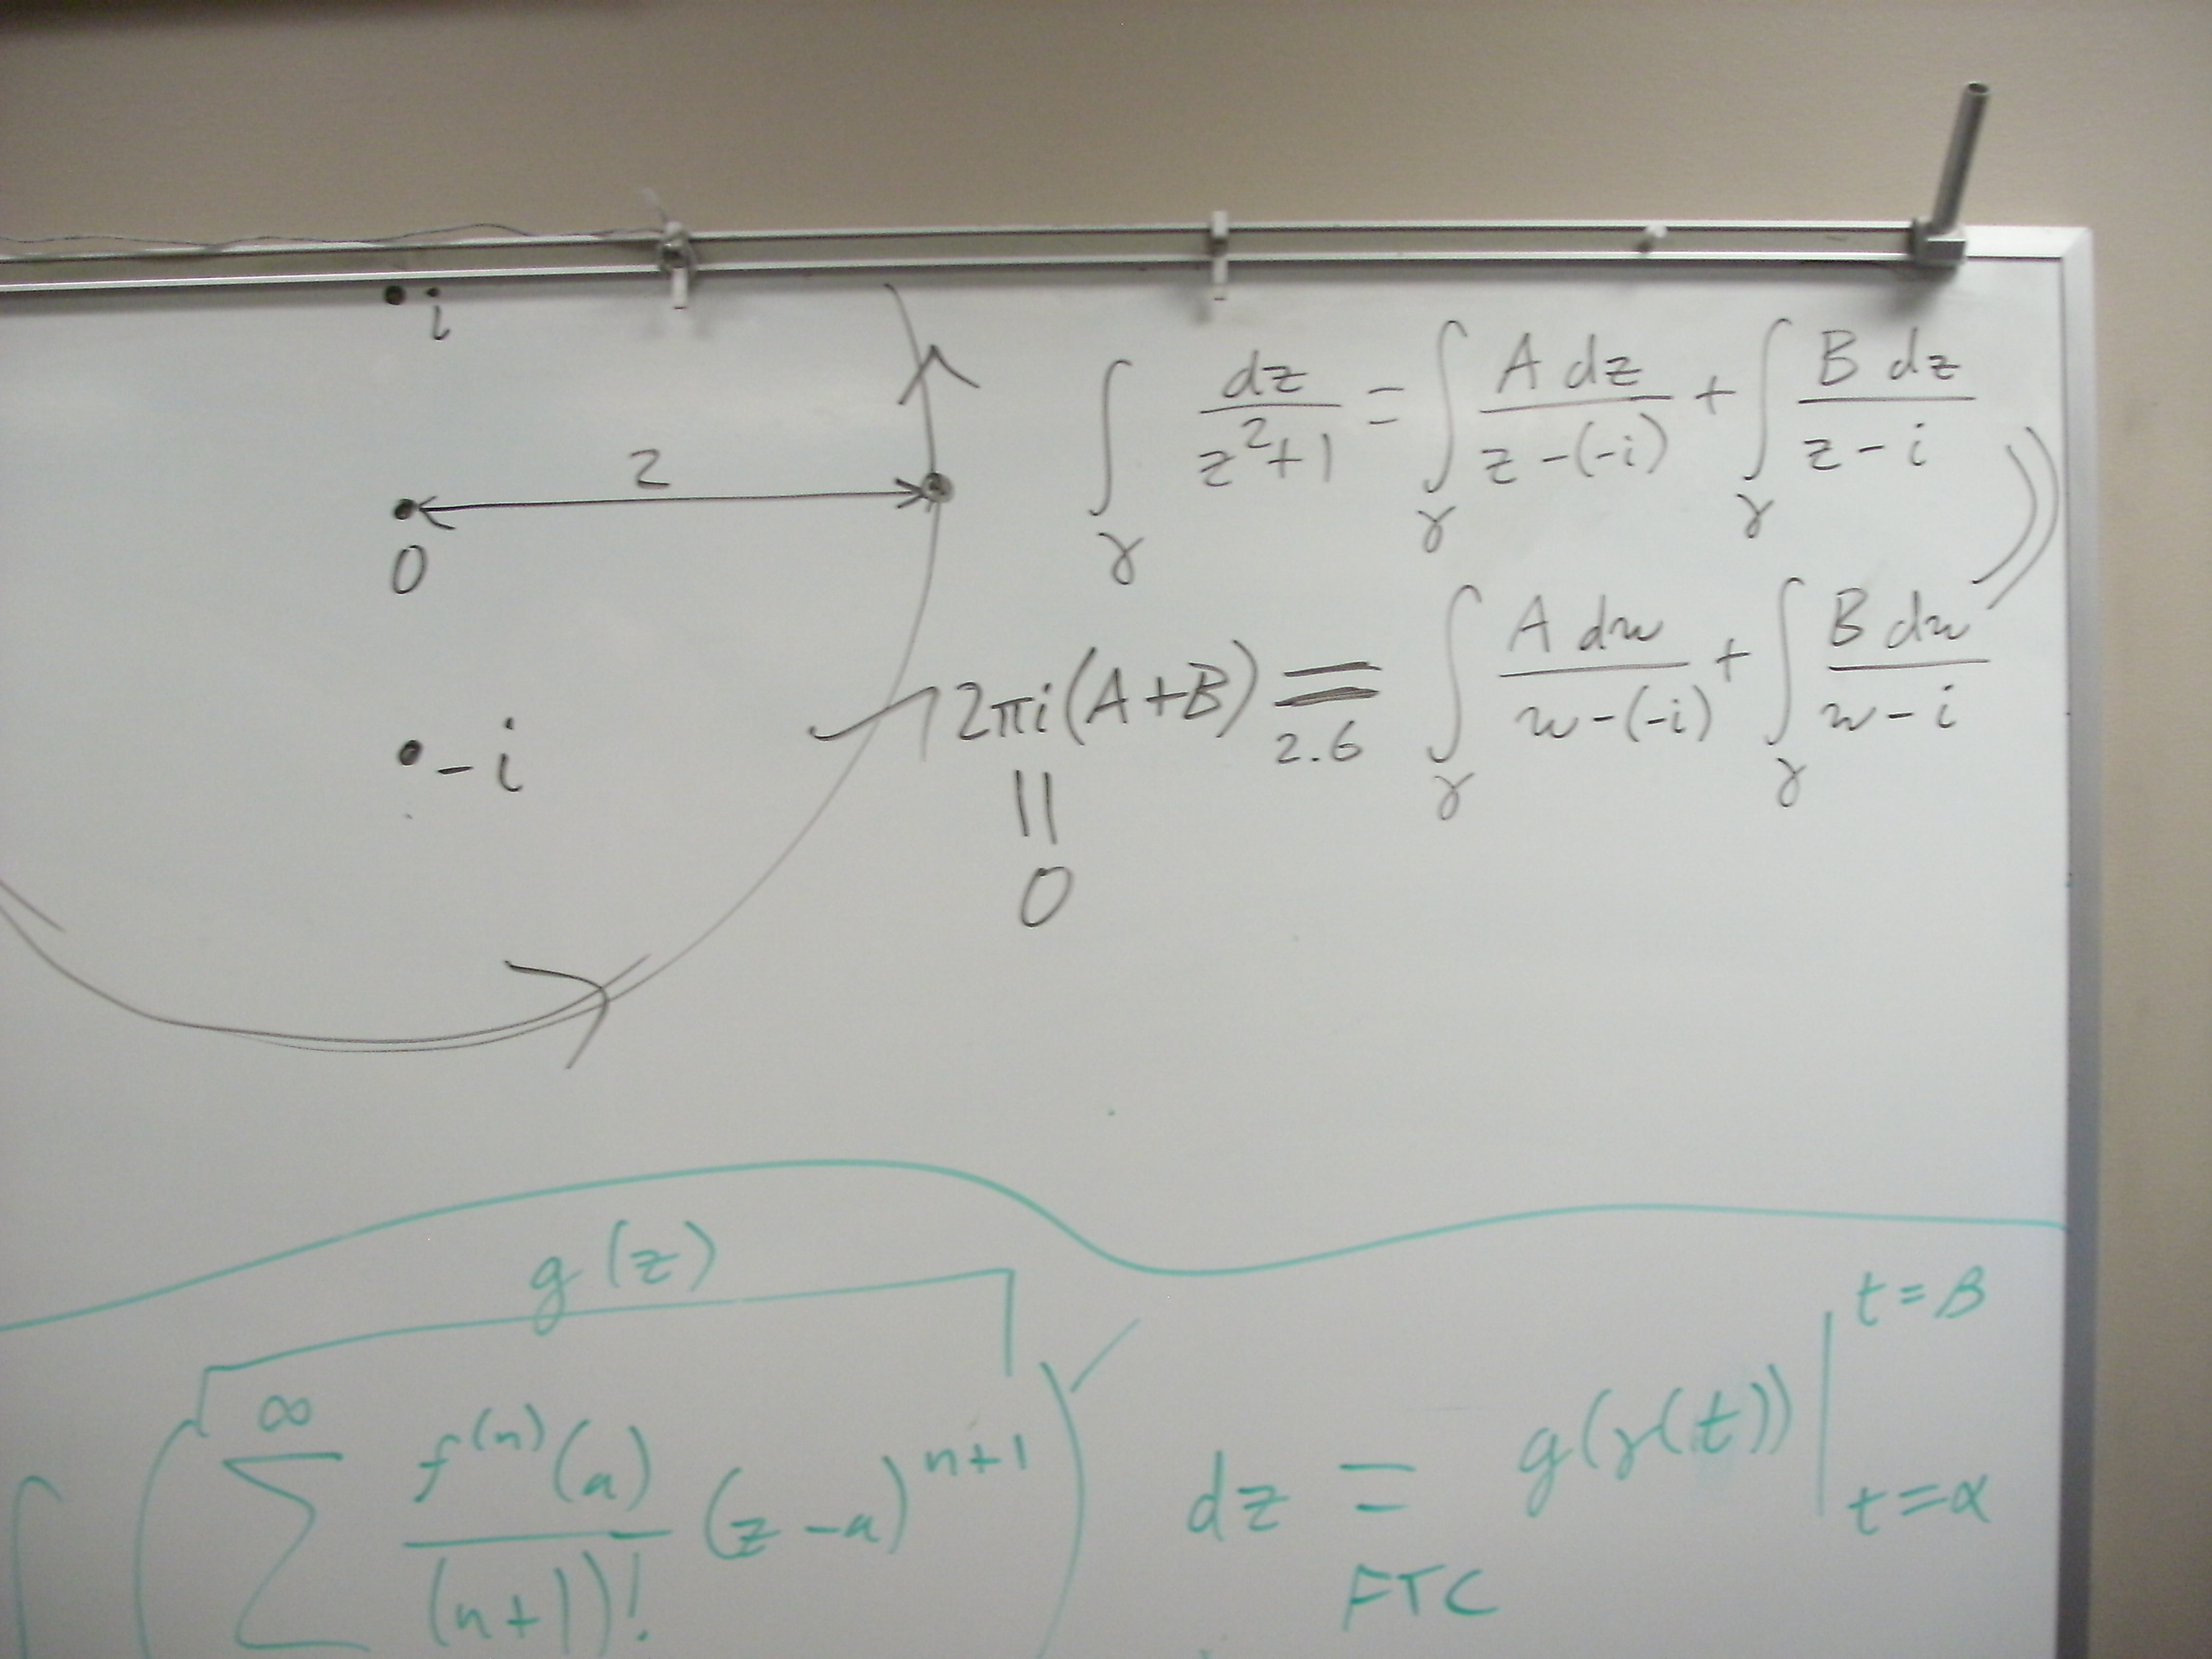 i
2
0
-i
∫γ dz/(z²+1) = ∫γ A dz/(z-(-i)) + ∫γ B dz/(z-i)
2πi(A+B) = 2.6 ∫γ A dw/(w-(-i)) + ∫γ B dw/(w-i)
||
0
g(z)
∫ (∑ ∞ f⁽ⁿ⁾(a)/(n+1)! (z-a)ⁿ⁺¹)' dz = FTC g(γ(t)) | t=β t=α